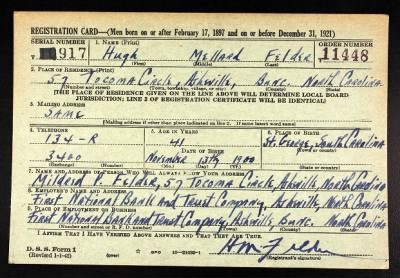 REGISTRATION CARD—(Men born on or after February 17, 1897 and on or before December 31, 1921)
SERIAL NUMBER 1. NAME (Print) ORDER NUMBER
T 917 Hugh Melland Felder 11448
(First) (Middle) (Last)
2. PLACE OF RESIDENCE (Print)
57 Tocoma Circle, Asheville, Bunc. North Carolina
(Number and street) (Town, township, village, or city) (County) (State)
[THE PLACE OF RESIDENCE GIVEN ON THE LINE ABOVE WILL DETERMINE LOCAL BOARD
JURISDICTION; LINE 2 OF REGISTRATION CERTIFICATE WILL BE IDENTICAL]
3. MAILING ADDRESS
SAME
[Mailing address if other than place indicated on line 2. If same insert word same]
4. TELEPHONE 5. AGE IN YEARS 6. PLACE OF BIRTH
134-R 41 St. George, South Carolina
DATE OF BIRTH
3400 November 13th 1900
7. NAME AND ADDRESS OF PERSON WHO WILL ALWAYS KNOW YOUR ADDRESS
Mildred W. Felder, 57 Tocoma Circle, Asheville, North Carolina
8. EMPLOYER'S NAME AND ADDRESS
First National Bank and Trust Company, Asheville, North Carolina
9. PLACE OF EMPLOYMENT OR BUSINESS
First National Bank and Trust Company, Asheville, Bunc. North Carolina
(Number and street or R. F. D. number) (Town) (County) (State)
I AFFIRM THAT I HAVE VERIFIED ABOVE ANSWERS AND THAT THEY ARE TRUE.
D. S. S. Form 1
(Revised 1-1-42) (over)
H M Felder
(Registrant's signature)